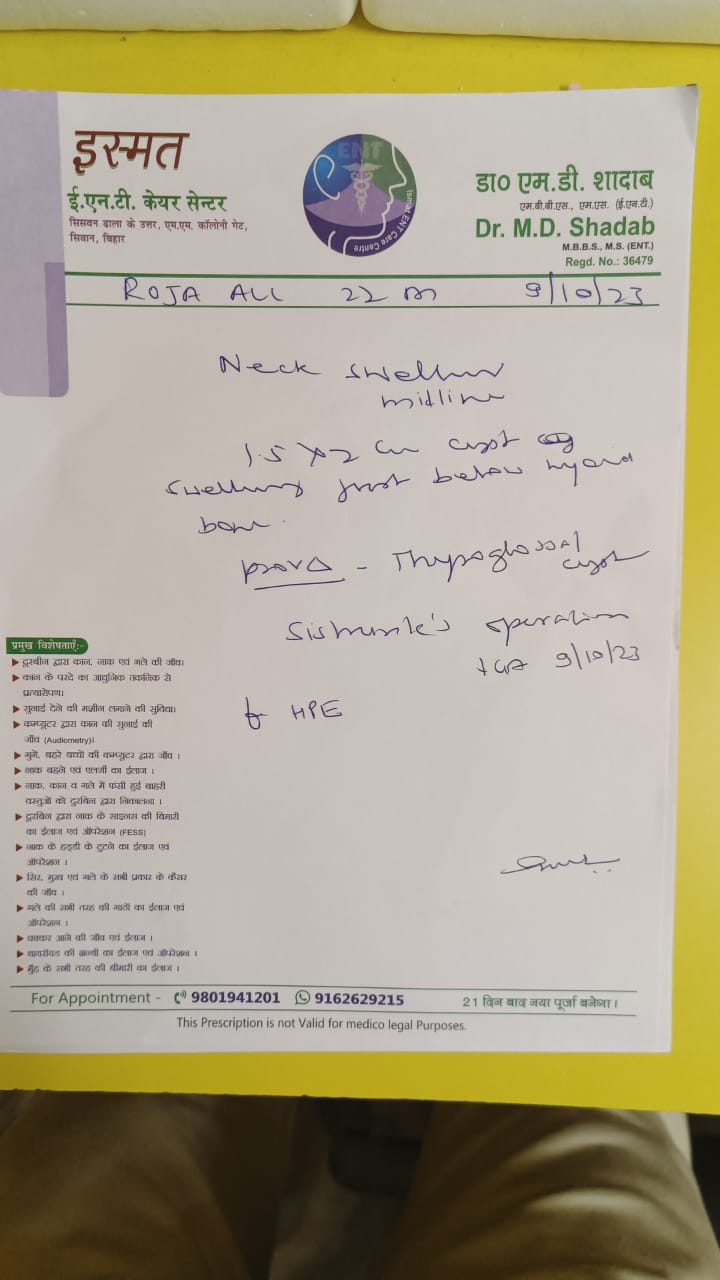 इस्मत
ई.एन.टी. केयर सेन्टर
सिसवन ढाला के उत्तर, एम.एम. कॉलोनी गेट,
सिवान, बिहार
ENT
Ismat ENT Care Centre
डा० एम.डी. शादाब
एम.बी.बी.एस., एम.एस. (ई.एन.टी.)
Dr. M.D. Shadab
M.B.B.S., M.S. (ENT.)
Regd. No.: 36479
ROJA ALI 22 m 9/10/23
Neck swelling
midline
1.5 x 2 cm cyst
swelling just below hyoid
bone.
Prov Δ - Thyroglossal
cyst
Sistrunk's operation
9/10/23
for HPE
प्रमुख विशेषताएँ:-
दूरबीन द्वारा कान, नाक एवं गले की जाँच।
कान के परदे का आधुनिक तकनिक से
प्रत्यारोपण।
सुनाई देने की मशीन लगाने की सुविधा।
कम्प्यूटर द्वारा कान की सुनाई की
जाँच (Audiometry)।
गुगें, बहरे बच्चों की कम्प्यूटर द्वारा जाँच ।
नाक बहने एवं एलर्जी का ईलाज ।
नाक, कान व गले में फंसी हुई बाहरी
वस्तुओं को दुरबिन द्वारा निकालना ।
दूरबिन द्वारा नाक के साइनस की बिमारी
का ईलाज एवं ऑपरेशन (FESS)
नाक के हड्डी के टुटने का ईलाज एवं
ऑपरेशन ।
सिर, मुख एवं गले के सभी प्रकार के कैंसर
की जाँच ।
गले की सभी तरह की गाठों का ईलाज एवं
ऑपरेशन ।
चक्कर आने की जाँच एवं ईलाज ।
थायरॉयड की ग्रन्थी का ईलाज एवं ऑपरेशन ।
मुँह के सभी तरह की बीमारी का ईलाज ।
For Appointment - 9801941201 9162629215
21 दिन बाद नया पूर्जा बनेगा ।
This Prescription is not Valid for medico legal Purposes.